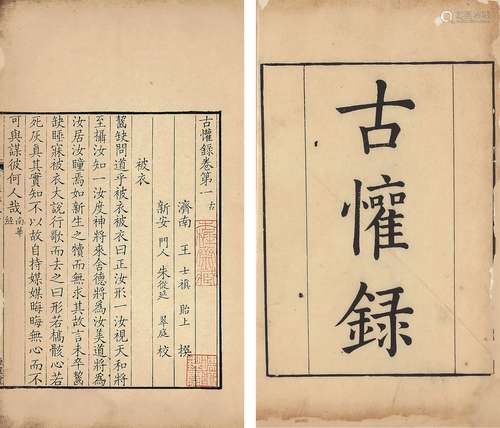 古懽錄
古懽錄卷第一 古
濟南 王士禛 貽上 撰
新安 門人 朱從延 翠庭 校
被衣
齧缺問道乎被衣被衣曰正汝形一汝視天和將
至攝汝知一汝度神將來舍德將為汝美道將為
汝居汝瞳焉如新生之犢而無求其故言未卒齧
缺睡寐被衣大說行歌而去之曰形若槁骸心若
死灰真其實知不以故自持媒媒晦晦無心而不
可與謀彼何人哉 南華經